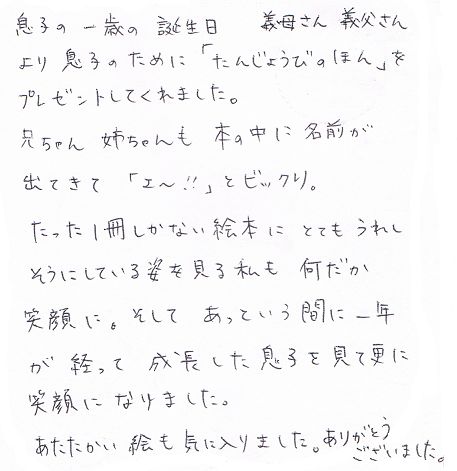 息子の 一歳の 誕生日 義母さん 義父さん
より 息子のために「たんじょうびのほん」を
プレゼントしてくれました。
兄ちゃん 姉ちゃんも 本の中に 名前が
出てきて 「エ〜!!」とビックリ。
たった1冊しかない絵本に とても うれし
そうにしている姿を見る私も 何だか
笑顔に。そして あっという間に一年
が 経って 成長した息子を見て更に
笑顔に なりました。
あたたかい 絵も 気に入りました。ありがとう
ございいました。